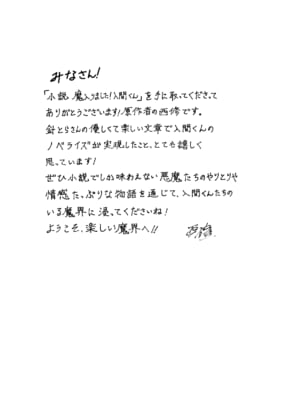 みなさん!
「小説 魔入りました!入間くん」を手に取ってくださって
ありがとうございます!原作者の西修です。
針とらさんの優しくて楽しい文章で入間くんの
ノベライズが実現したこと、とても嬉しく
思っています!
ぜひ小説でしか味わえない悪魔たちのやりとりや
情感たっぷりな物語を通じて、入間くんたちの
いる魔界に浸ってくださいね!
ようこそ、楽しい魔界へ!!